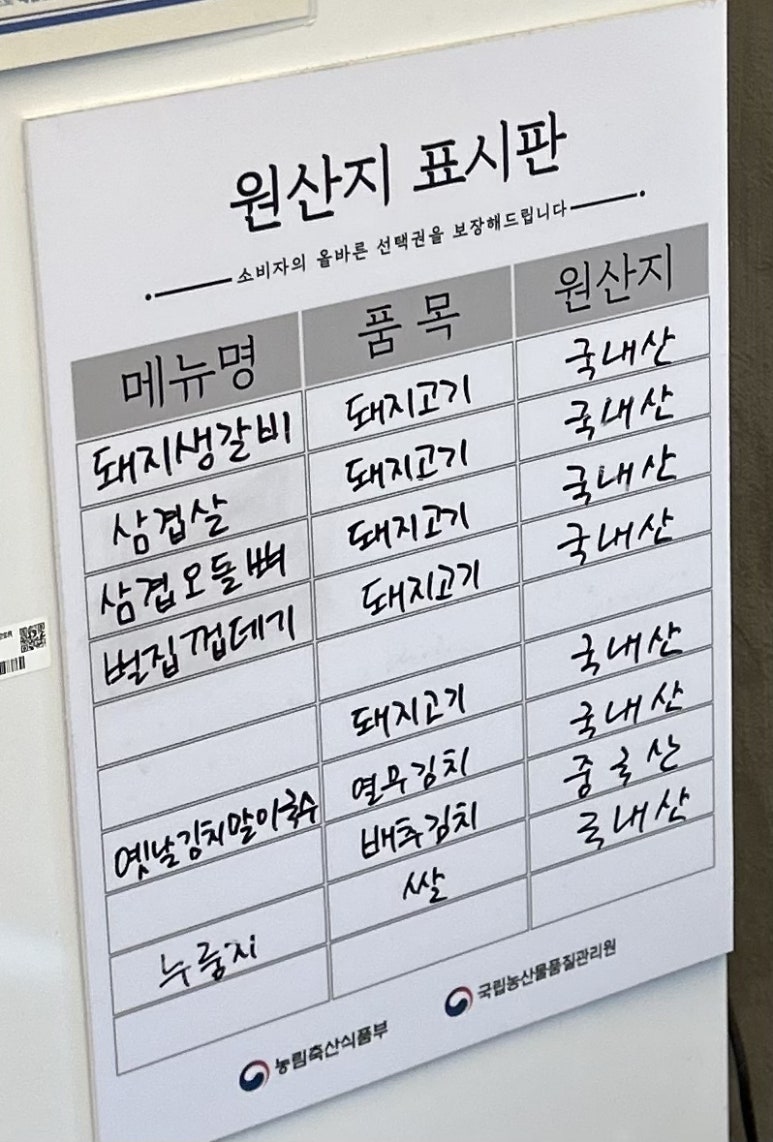 원산지 표시판
소비자의 올바른 선택권을 보장해드립니다
메뉴명 품목 원산지
돼지생갈비 돼지고기 국내산
삼겹살 돼지고기 국내산
삼겹오돌뼈 돼지고기 국내산
벌집껍데기 돼지고기 국내산
돼지고기 국내산
옛날김치말이국수 열무김치 국내산
배추김치 중국산
누룽지 쌀 국내산
농림축산식품부 국립농산물품질관리원